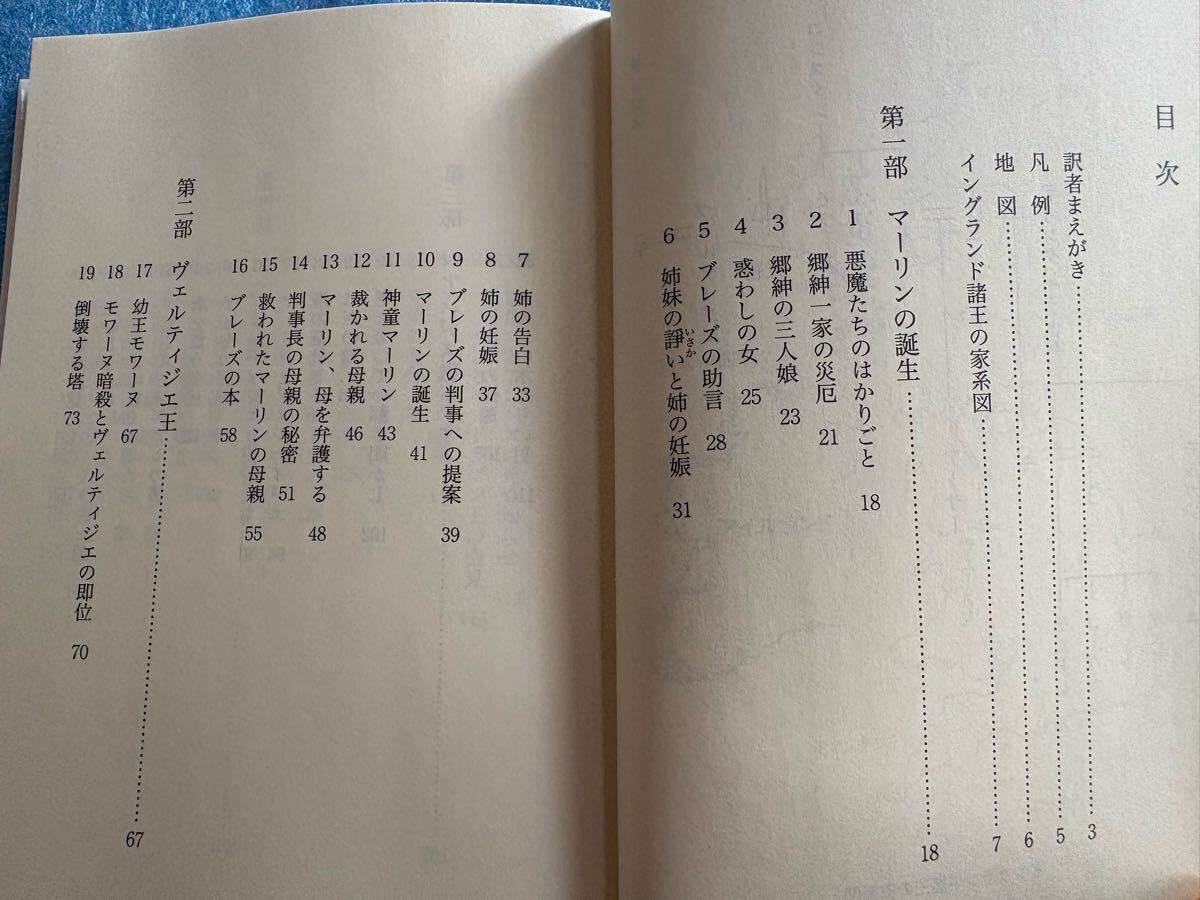 目次
訳者まえがき……3
凡例……5
地図……6
イングランド諸王の家系図……7
第一部 マーリンの誕生……18
1 悪魔たちのはかりごと 18
2 郷紳一家の災厄 21
3 郷紳の三人娘 23
4 惑わしの女 25
5 ブレーズの助言 28
6 姉妹の諍いと姉の妊娠 31
いさか
7 姉の告白 33
8 姉の妊娠 37
9 ブレーズの判事への提案 39
10 マーリンの誕生 41
11 神童マーリン 43
12 裁かれる母親 46
13 マーリン、母を弁護する 48
14 判事長の母親の秘密 51
15 救われたマーリンの母親 55
16 ブレーズの本 58
第二部 ヴェルティジエ王……67
17 幼王モワーヌ 67
18 モワーヌ暗殺とヴェルティジエの即位 70
19 倒壊する塔 73